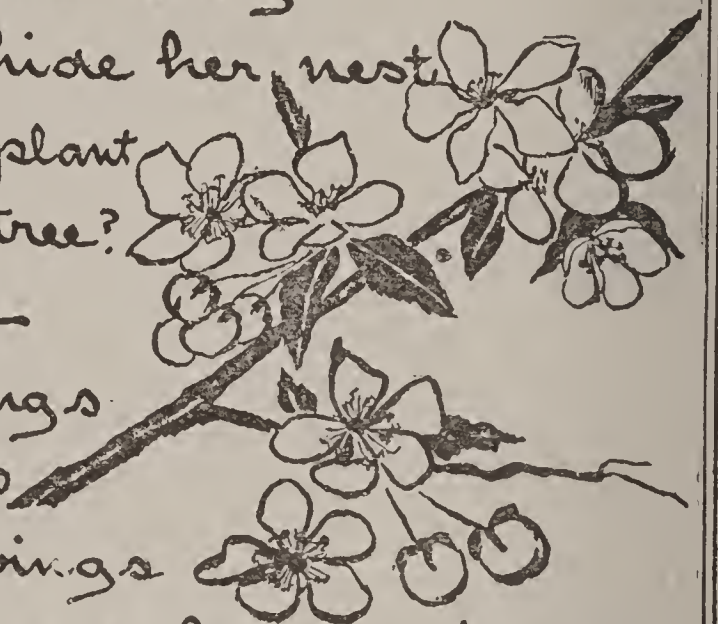 hide her nest,
plant
tree?
ngs
ings